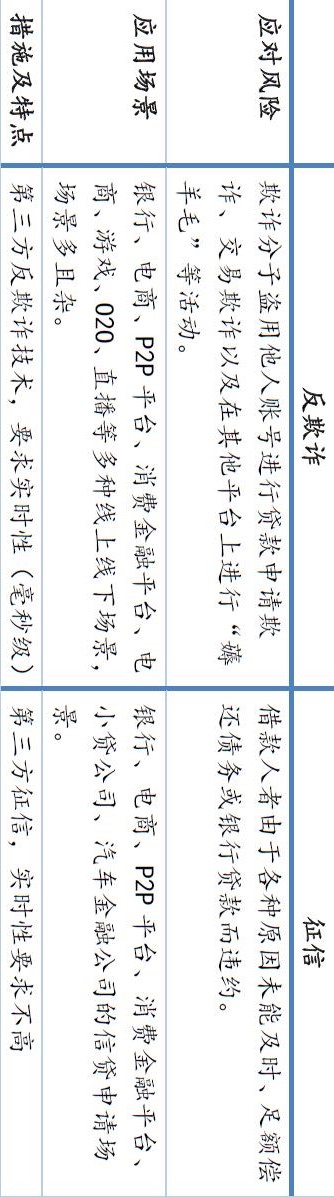 反欺诈
征信
应对风险
欺诈分子盗用他人账号进行贷款申请欺
诈、交易欺诈以及在其他平台上进行“薅
羊毛”等活动。
借款人者由于各种原因未能及时、足额偿
还债务或银行贷款而违约。
应用场景
银行、电商、P2P 平台、消费金融平台、电
商、游戏、O2O、直播等多种线上线下场景，
场景多且杂。
银行、电商、P2P 平台、消费金融平台、
小贷公司、汽车金融公司的信贷申请场
景。
措施及特点
第三方反欺诈技术，要求实时性（毫秒级）
第三方征信，实时性要求不高